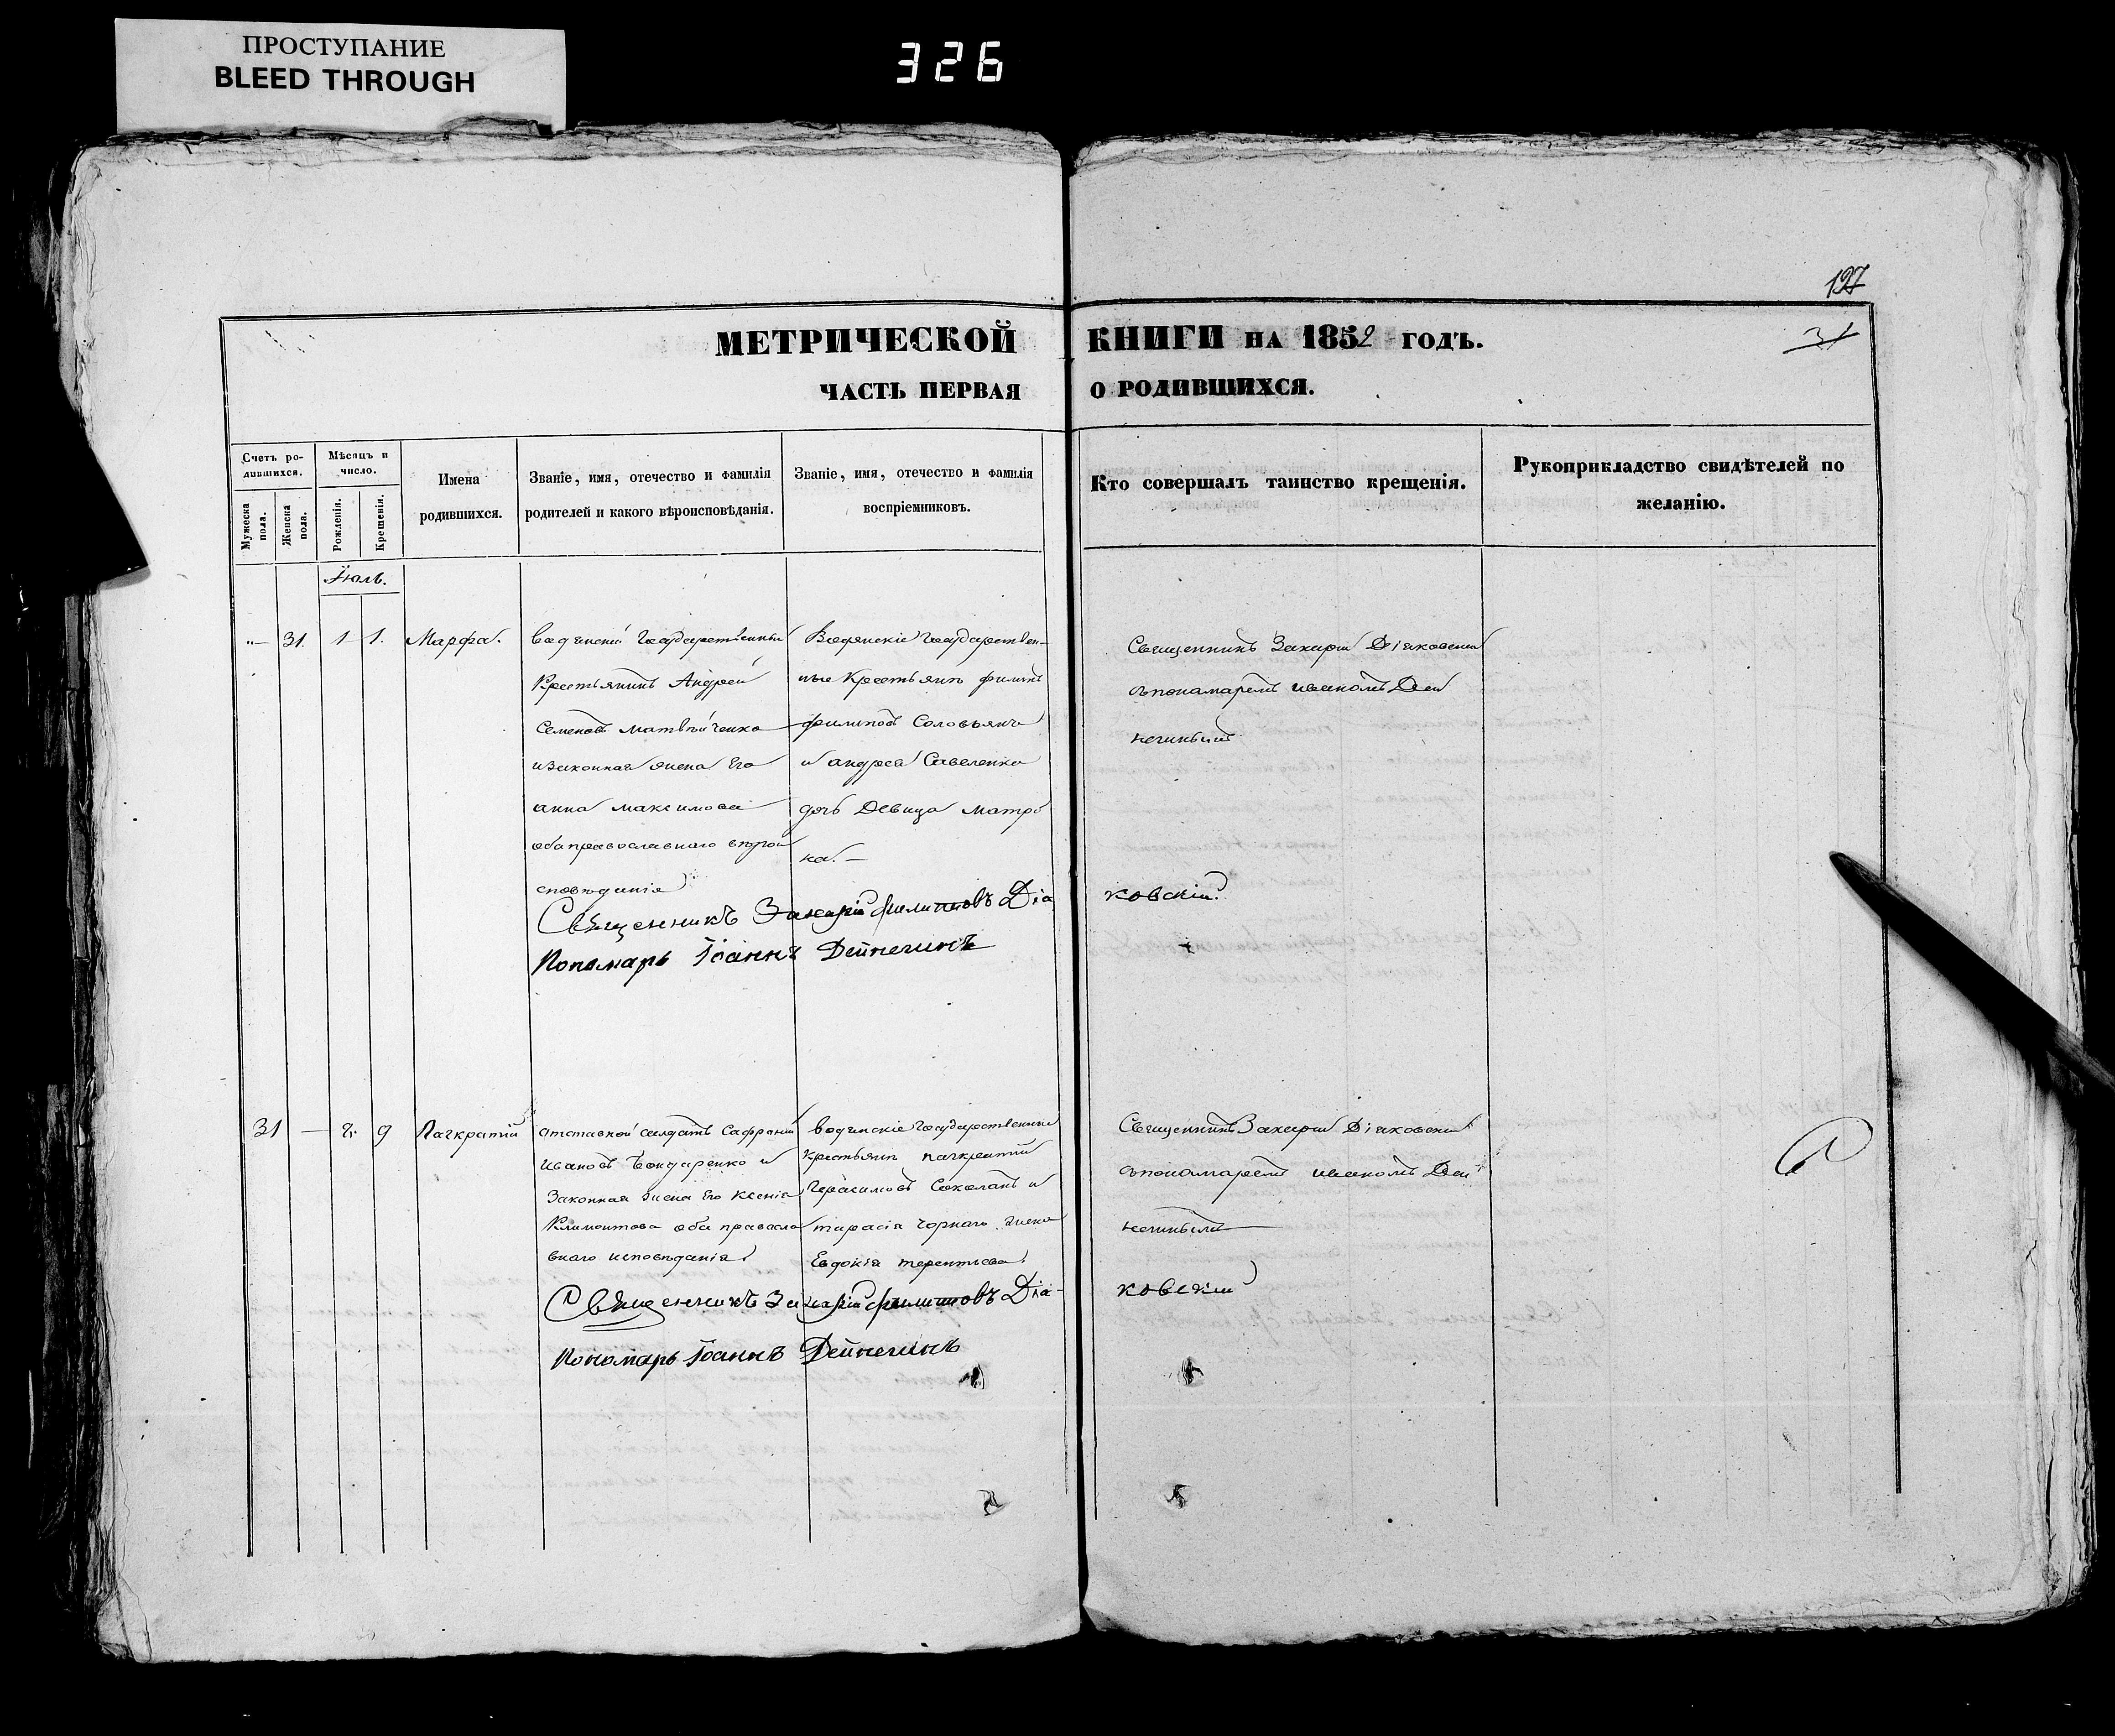 ПРОСТУПАНИЕ
BLEED THROUGH
326
127
31
МЕТРИЧЕСКОЙ КНИГИ НА 1852 ГОДЪ.
ЧАСТЬ ПЕРВАЯ О РОДИВШИХСЯ.
Счетъ ро-
дившихся.
Мужеска
пола.
Женска
пола.
Мѣсяцъ и
число.
Рожденія.
Крещенія.
Имена
родившихся.
Званіе, имя, отечество и фамилія
родителей и какого вѣроисповѣданія.
Званіе, имя, отечество и фамилія
воспріемниковъ.
Кто совершалъ таинство крещенія.
Рукоприкладство свидѣтелей по
желанію.
Іюль.
"— 31. 1 1. Марфа.
Крестьянинъ Андрей
Семеновъ
изаконная жена Его
анна максимова
оба православнаго вѣрои
сповѣданія
ные Крестьяне
филиповъ
и андрея Савеленко
дочь Девица матро
на. —
Священникъ Захарій Діяковскій
съпономаремъ иваномъ Дей
нечинымъ
Священникъ Захарій филиповъ Діа
ковскій
Пономарь Іоаннъ Дейнечинъ
31 — 9 Панкратій
отставной солдатъ
Ивановъ Бондаренко и
Законная жена Его Ксенія
Климонтова оба правосла
внаго исповѣданія
водянскіе государственные
крестьяне панкратій
Герасимовъ и
тарасія чорнаго жена
Евдокія терентьева
Священникъ Захарій Діяковскій
съпономаремъ иваномъ Дей
нечинымъ
Священникъ Захарій филиповъ Діа-
ковскій
Пономарь Іоаннъ Дейнечинъ